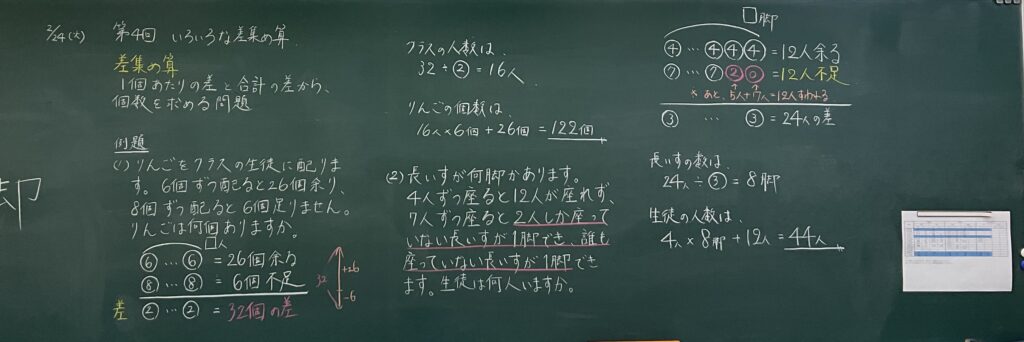 2/24(火) 第4回 いろいろな差集め算
差集め算
1個あたりの差と合計の差から、
個数を求める問題
例題
(1) りんごをクラスの生徒に配りま
す。6個ずつ配ると26個余り、
8個ずつ配ると6個足りません。
りんごは何個ありますか。
□人
⑥…⑥=26個余る
⑧…⑧=6個不足
差 ②…②=32個の差
32
+26
-6
クラスの人数は、
32÷②=16人
りんごの個数は、
16人×6個+26個=122個
(2) 長いすが何脚かあります。
4人ずつ座ると12人が座れず、
7人ずつ座ると2人しか座って
いない長いすが1脚でき、誰も
座っていない長いすが1脚でき
ます。生徒は何人いますか。
□脚
④…④④④=12人余る
⑦…⑦②⓪=12人不足
*あと、5人+7人=12人すわれる
③ … ③=24人の差
長いすの数は、
24人÷③=8脚
生徒の人数は、
4人×8脚+12人=44人
却